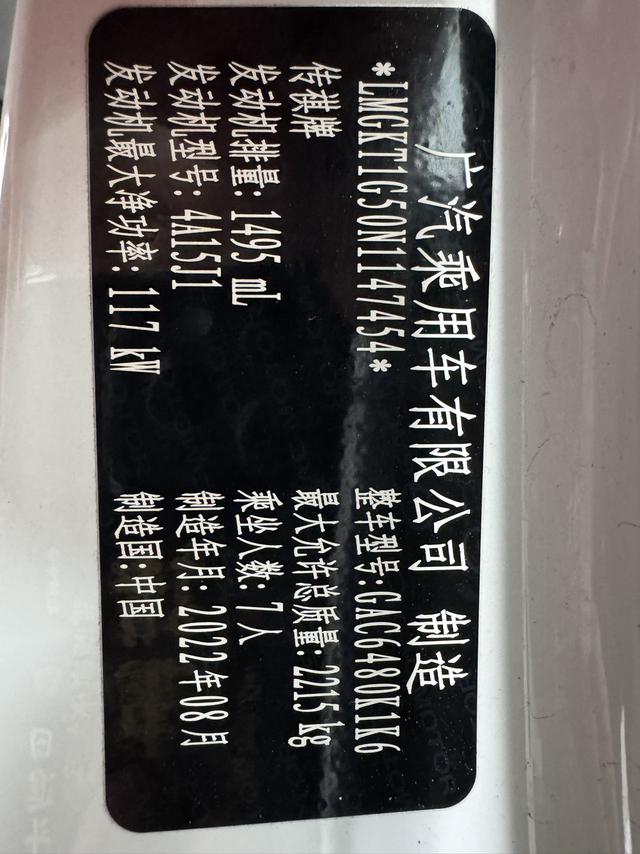 广汽乘用车有限公司 制造
*LMGKT1G50N1147454* 整车型号:GAC6480K1K6
传祺牌 最大允许总质量:2215kg
发动机排量:1495 mL 乘坐人数:7人
发动机型号:4A15J1 制造年月:2022年08月
发动机最大净功率:117 kW 制造国:中国